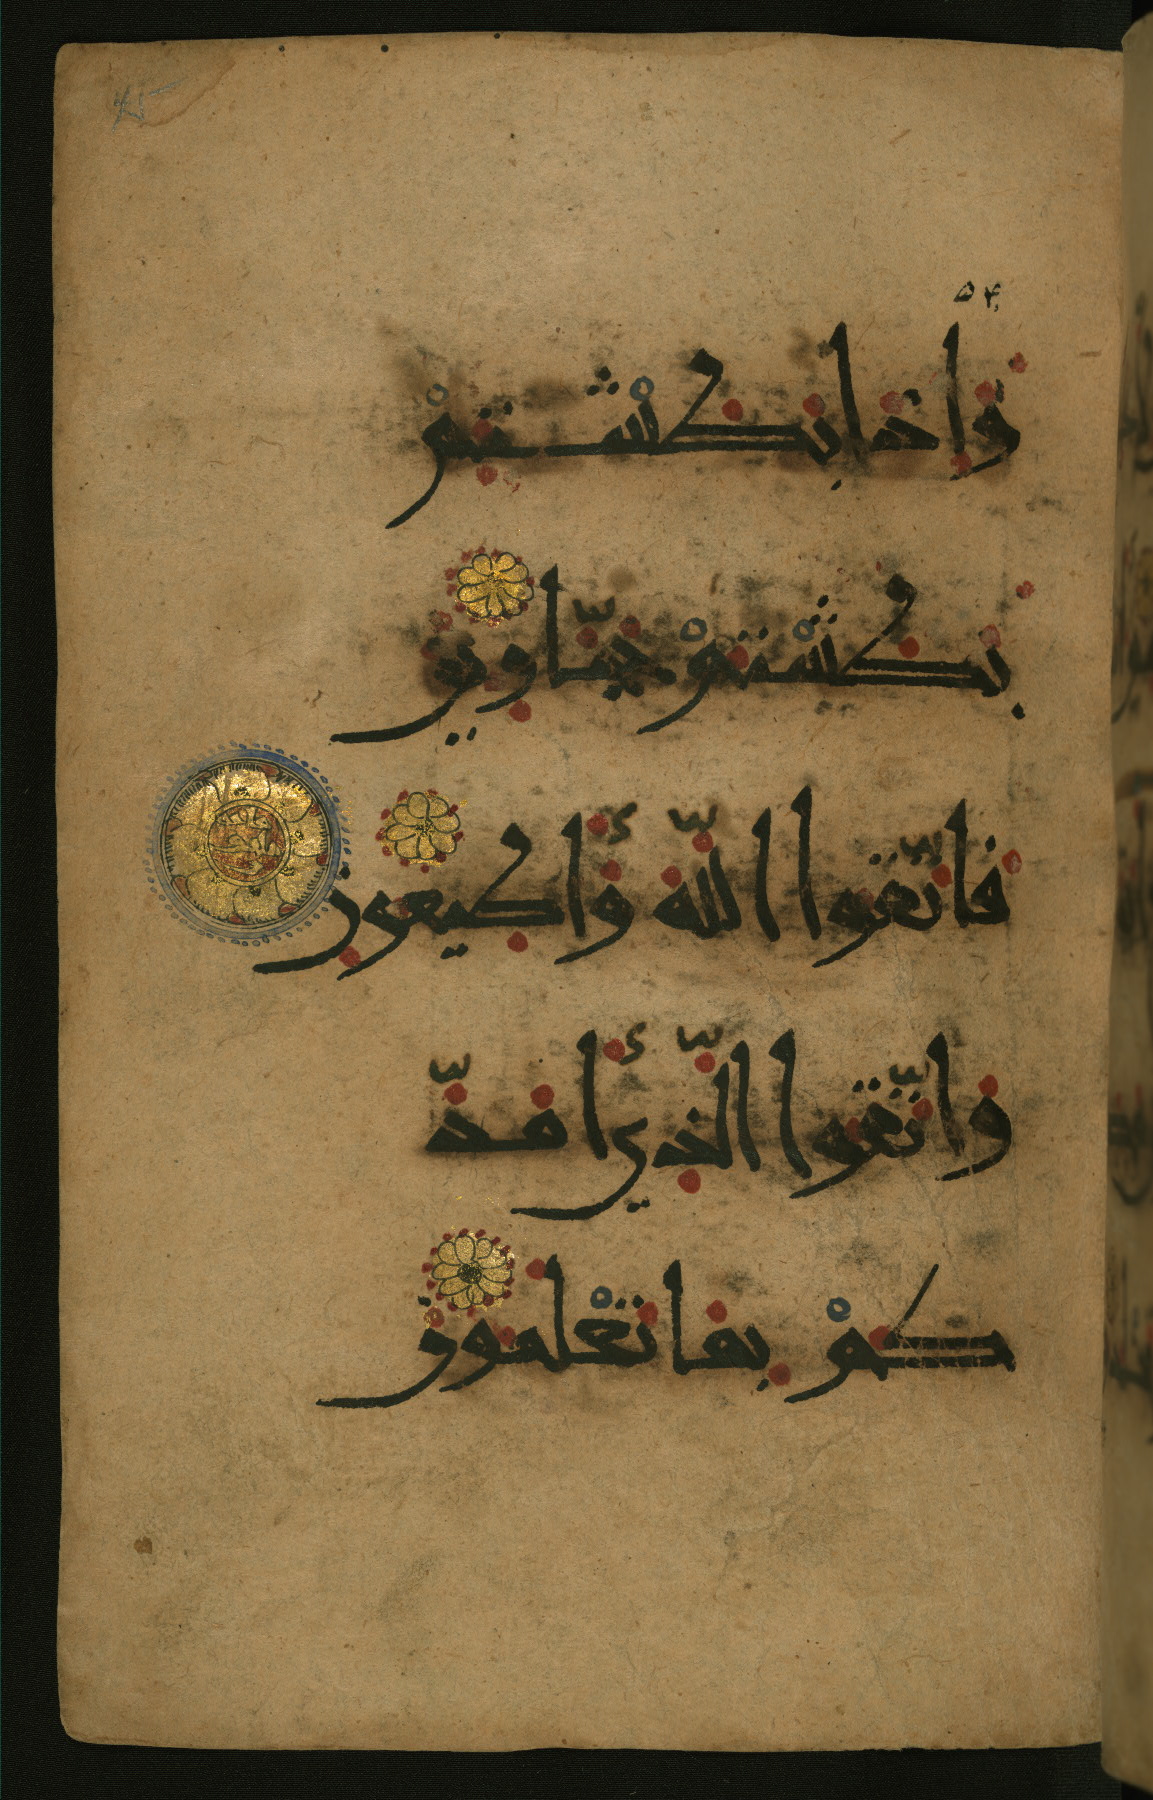 ۵۴
وَإِذَا بَطَشْتُمْ
بَطَشْتُمْ جَبَّارِينَ
فَاتَّقُوا اللَّهَ وَأَطِيعُونِ
وَاتَّقُوا الَّذِي أَمَدَّ
كُمْ بِمَا تَعْلَمُونَ